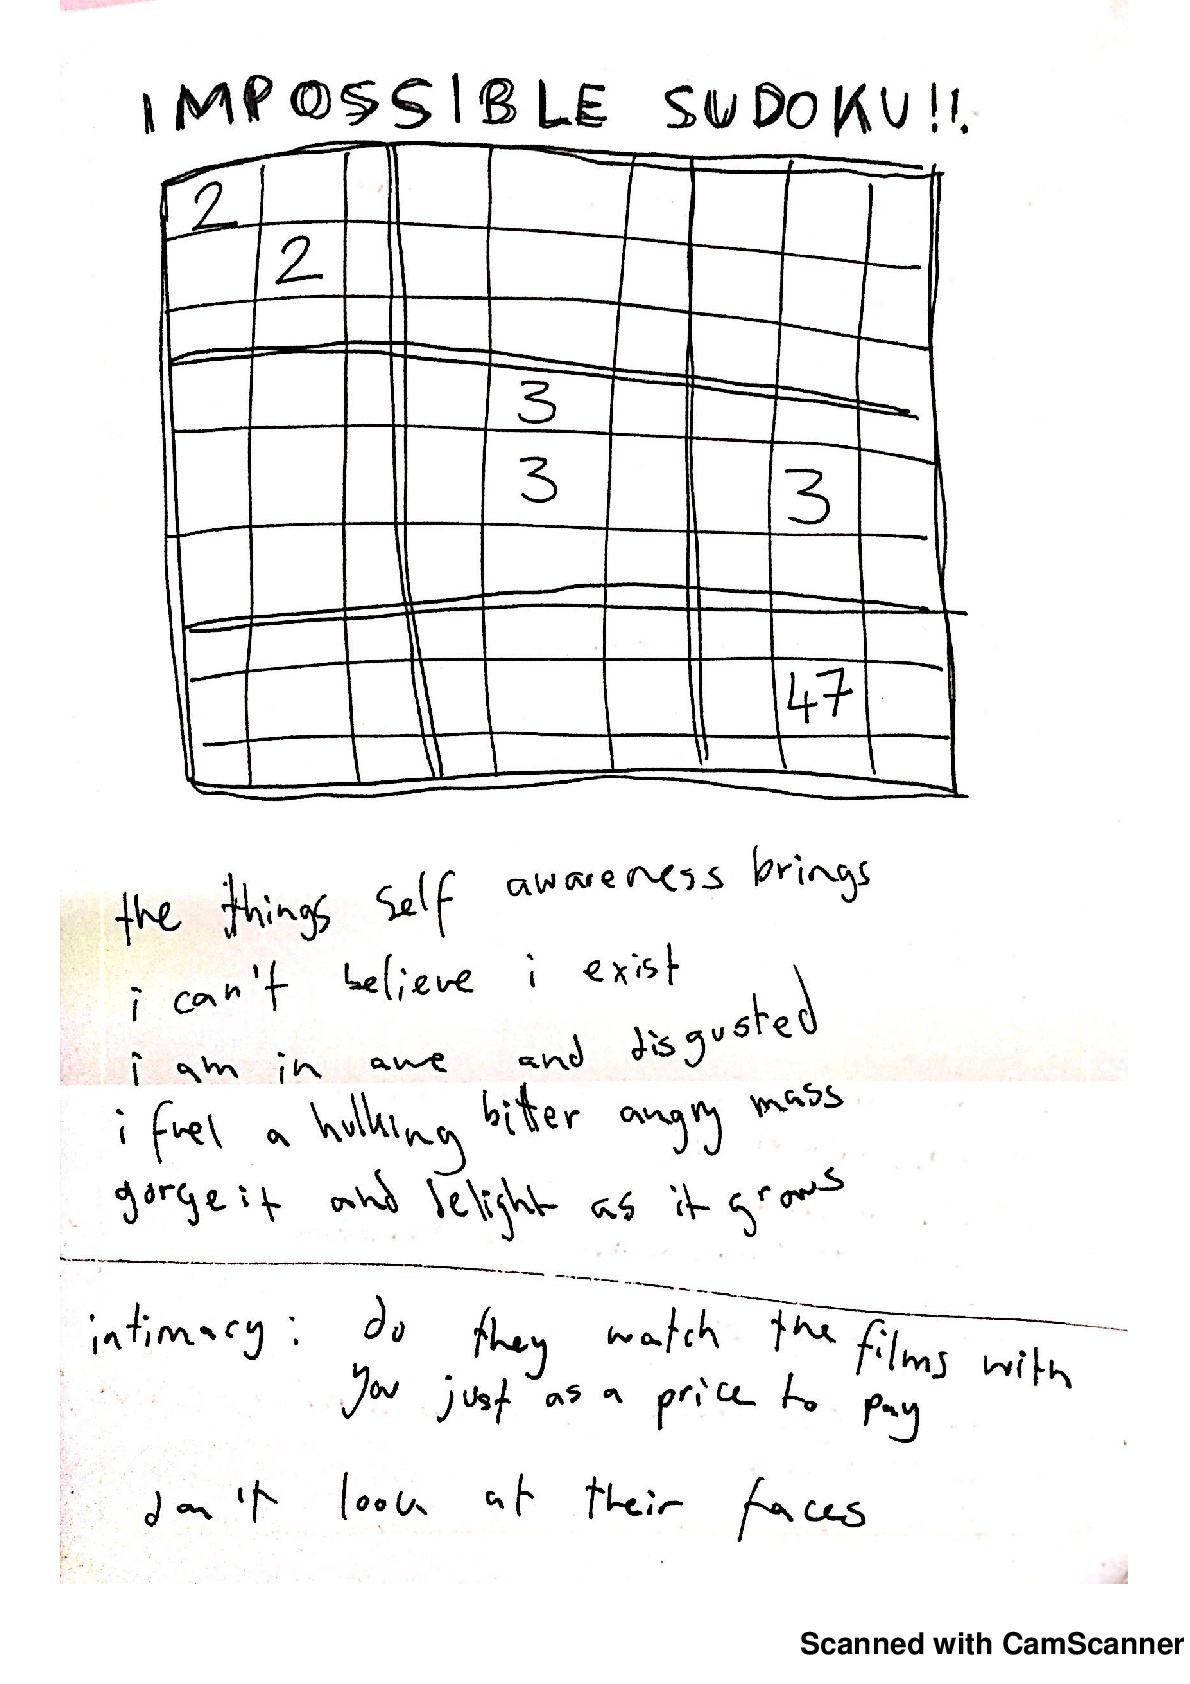 IMPOSSIBLE SUDOKU!!.
2
2
3
3 3
47
the things self awareness brings
i can't believe i exist
i am in awe and disgusted
i fuel a hulking bitter angry mass
gorge it and delight as it grows
intimacy: do they watch the films with
you just as a price to pay
don't look at their faces
Scanned with CamScanner